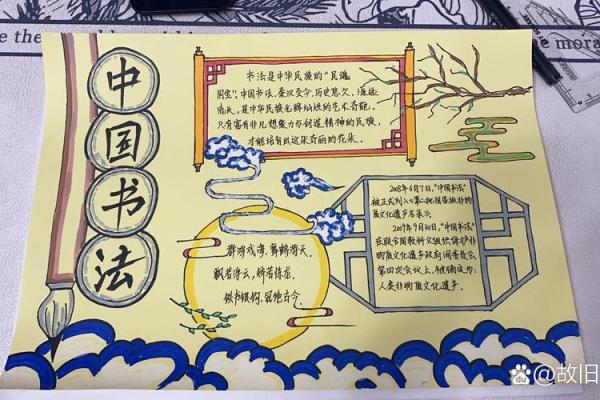 中国书法
书法是中华民族的“民
国宝”，中国书法，秦汉交今，历史悠久，源远
流长，是中华民族光辉灿烂的艺术奇葩，
只有富有非凡想象力和创造精神的民族，
才能培育出这朵奇丽的花朵。
2008年6月7日，“中国书法”
被正式列入《第二批国家级非物
质文化遗产名录》
2009年9月30日，“中国书法”
在联合国教科文组织保护非
物质文化遗产政府间委员会
第四次会议上，被确定为：
人类非物质文化遗产。
群鸿戏海，舞鹤游天。
飘若游云，矫若惊龙。
铁书银钩，冠绝古今。
e the
the mora
@故旧